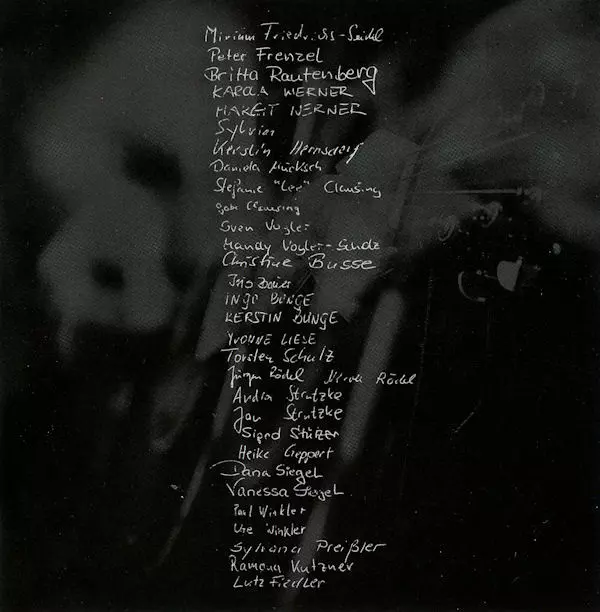 Miriam Friedriss-Seidel
Peter Frenzel
Britta Rautenberg
KAROLA WERNER
MARGIT WERNER
Sylvia
Kerstin Hermsdorf
Daniela Mücksch
Stefanie "Lee" Clausing
Gabi Clausing
Sven Vogler
Mandy Vogler-
Christine Busse
INGO BUNGE
KERSTIN BUNGE
YVONNE LIESE
Torsten Schulz
Jürgen Rödel Rödel
Strutzke
Jan Strutzke
Sigrid Stützer
Heike Geppert
Dana Siegel
Vanessa Siegel
Paul Winkler
Ute Winkler
Sylvana Preißler
Ramona Kutzner
Lutz Fiedler